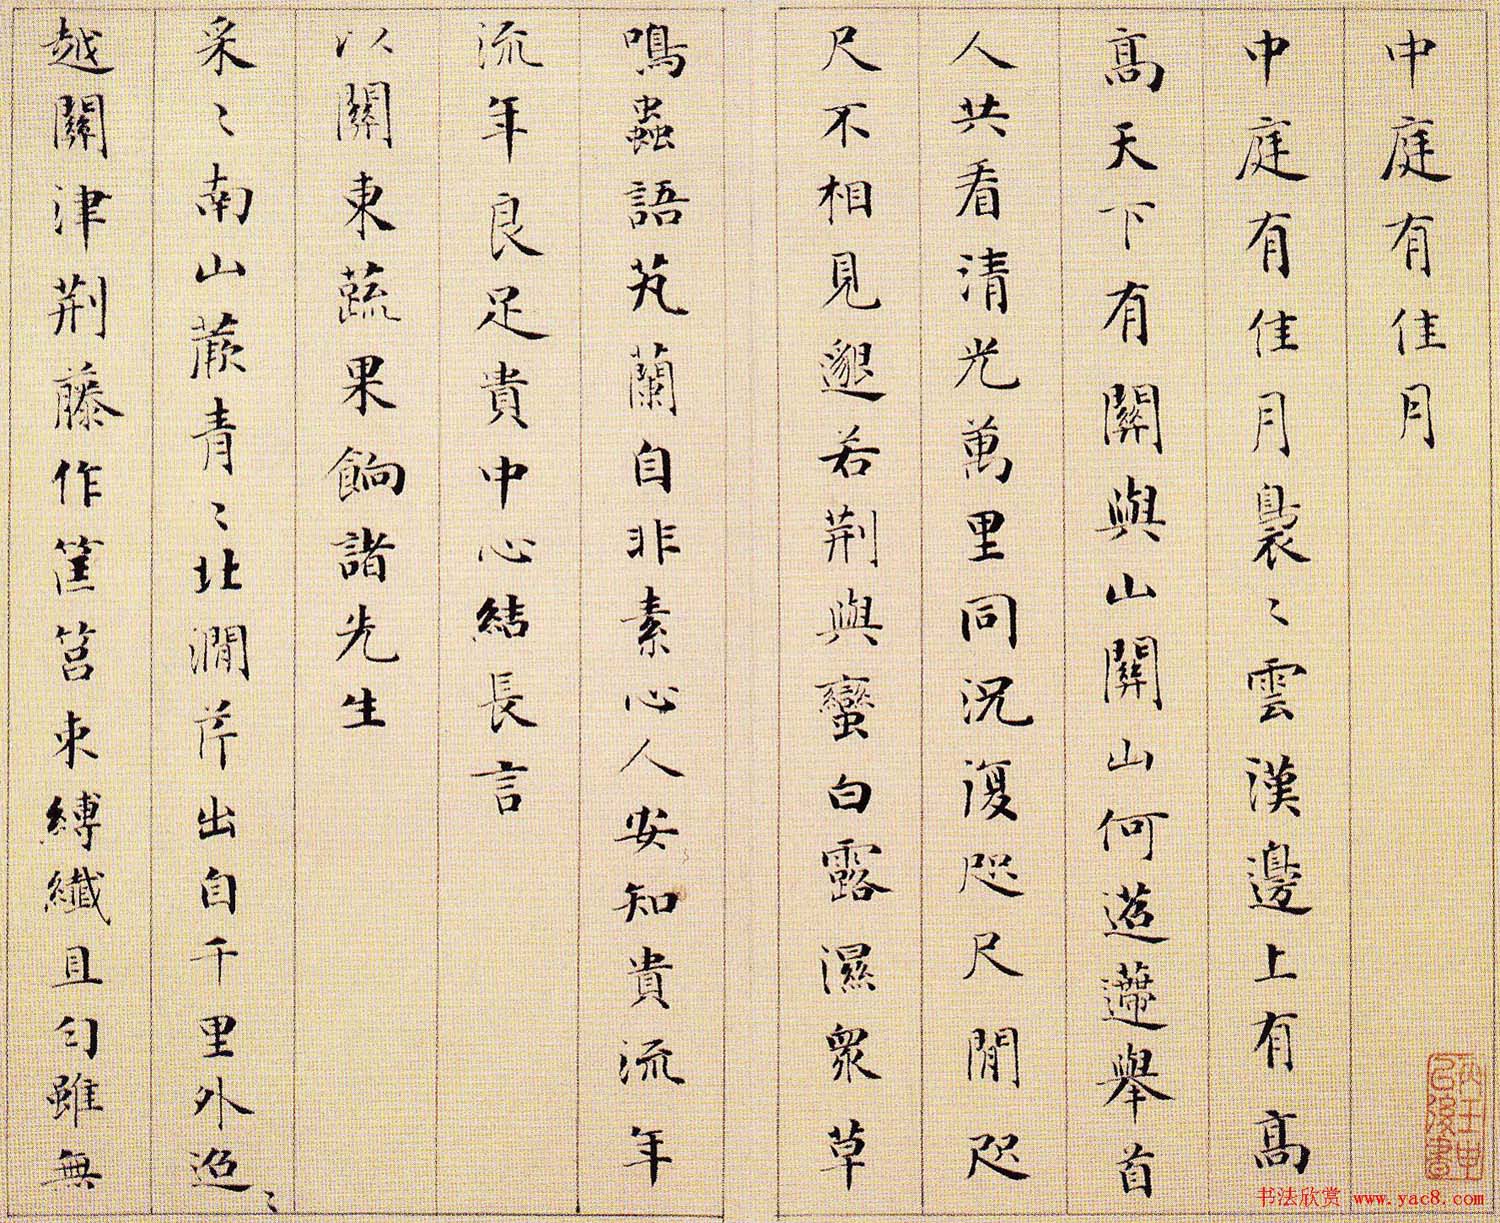 中庭有佳月
中庭有佳月裊〻雲漢邊上有高
高天下有關與山關山何迢遰舉首
人共看清光萬里同況復咫尺間咫
尺不相見邈若荆與蠻白露濕衆草
鳴蟲語芄蘭自非素心人安知貴流年
流年良足貴中心結長言
以關東蔬果餉諸先生
采〻南山蕨青〻北澗芹出自千里外迢〻
越關津荆藤作筐筥束縛纖且勻雖無
书法欣赏 www.yac8.com